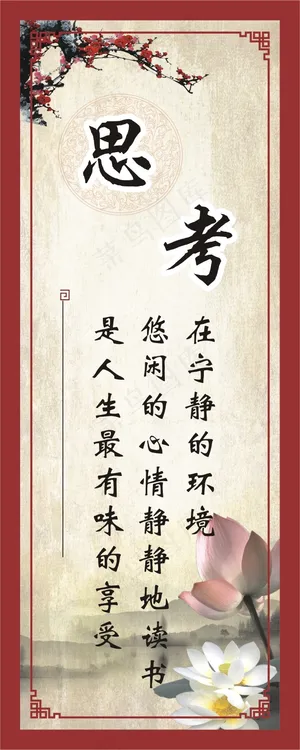 思考
在宁静的环境
悠闲的心情静静地读书
是人生最有味的享受